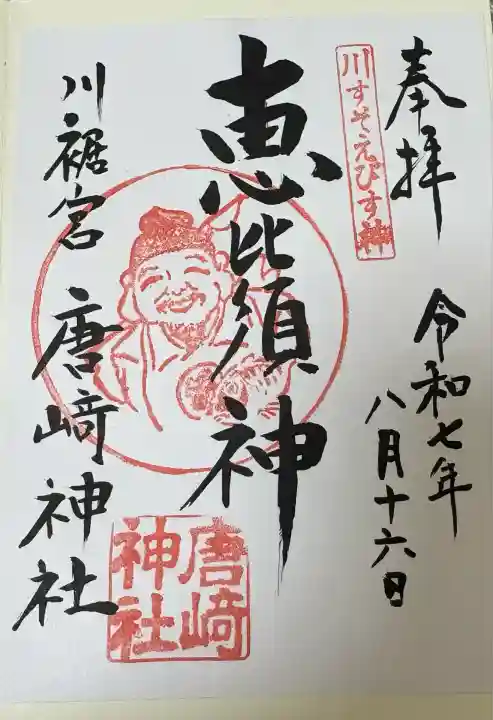 奉拝
令和七年
八月十六日
川すそえびす神
恵比須神
川裾宮 唐﨑神社
唐﨑
神社